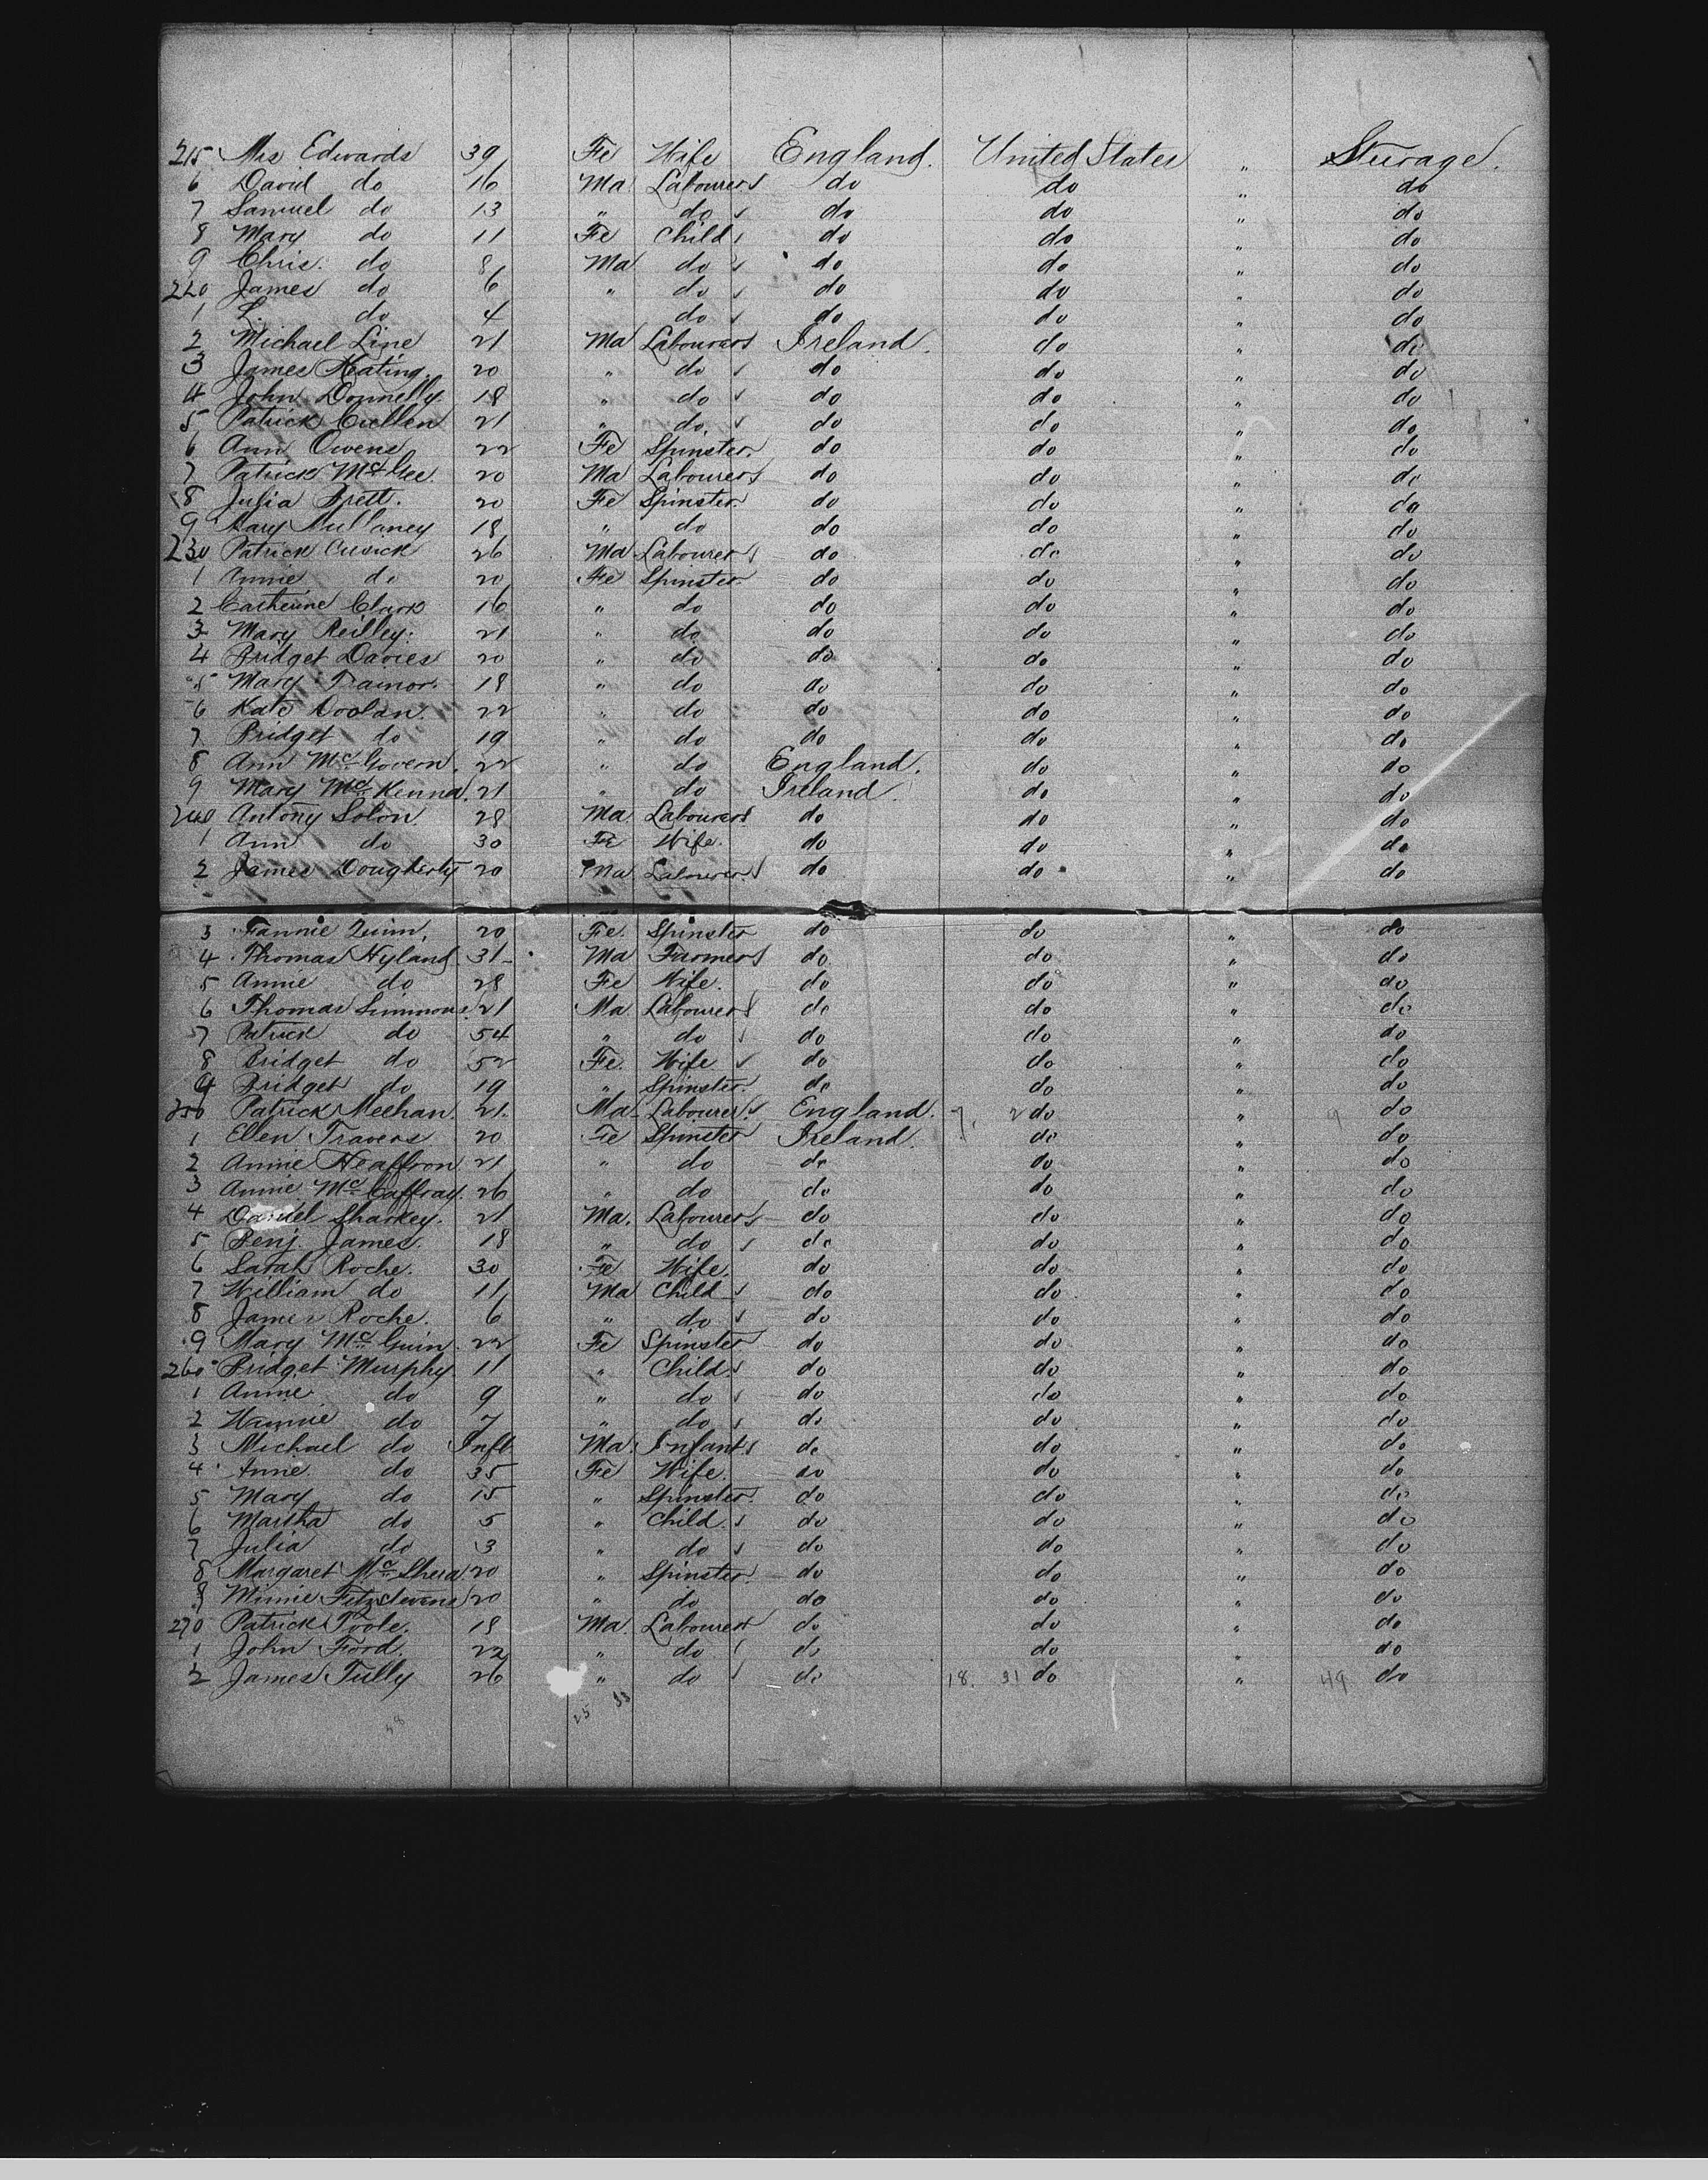 215 Mrs Edwards 39 Fe Wife England. United States " Steerage.
6 David do 16 Ma Labourer do do " do
7 Samuel do 13 " do do do " do
8 Mary do 11 Fe Child do do " do
9 Chris. do 8 Ma do do do " do
220 James do 6 " do do do " do
1 L. do 4 do do do " do
2 Michael Line 21 Ma Labourer Ireland. do " do
3 James Keating. 20 " do do do " do
4 John Donnelly. 18 " do do do " do
5 Patrick Cullen 21 " do. do do " do
6 Ann Owens 22 Fe Spinster. do do " do
7 Patrick McGee. 20 Ma Labourer do do " do
8 Julia Brett. 20 Fe Spinster. do do " do
9 Mary Mullaney 18 " do do do " do
230 Patrick Cusick 26 Ma Labourer do do " do
1 Annie do 20 Fe Spinster. do do " do
2 Catherine Clark 16 " do do do " do
3 Mary Reilley. 21 " do do do " do
4 Bridget Davies 20 " do do do " do
5 Mary Trainor. 18 " do do do " do
6 Kate Doolan. 22 " do do do " do
7 Bridget do 19 " do do do " do
8 Ann McGovern. 22 " do England. do " do
9 Mary McKenna. 21 " do Ireland. do " do
240 Antony Solon. 28 Ma. Labourer. do do " do
1 Ann do 30 Fe Wife. do do " do
2 James Dougherty 20 Ma Labourer. do do " do
3 Fannie Quinn. 20 Fe. Spinster do do " do
4 Thomas Hyland. 31 Ma Farmer do do " do
5 Annie do 28 Fe Wife. do do " do
6 Thomas Simmons. 21 Ma. Labourer do do " do
7 Patrick do 54 " do do do " do
8 Bridget do 52 Fe. Wife do do " do
9 Bridget do 19 " Spinster. do do " do
250 Patrick Meehan. 21. Ma. Labourer. England. 7. 2 do " 9 do
1 Ellen Travers 20 Fe Spinster Ireland. do " do
2 Annie Heaffron 21 " do do do " do
3 Annie McCaffray. 26 " do do do " do
4 Daniel Sharkey. 21 Ma. Labourer do do " do
5 Benj. James. 18 " do do do " do
6 Sarah Roche. 30 Fe Wife. do do " do
7 William do 11 Ma Child do do " do
8 James Roche. 6 " do do do " do
9 Mary McGuin. 22 Fe Spinster do do " do
260 Bridget Murphy. 11 " Child do do " do
1 Annie do 9 " do do do " do
2 Hannie do 7 " do do do " do
3 Michael do Inft Ma. Infant do do " do
4 Anne. do 35 Fe Wife. do do " do
5 Mary do 15 " Spinster. do do " do
6 Martha do 5 " Child. do do " do
7 Julia do 3 " do do do " do
8 Margaret McShera 20 " Spinster. do do " do
9 Minnie Fitzstevens 20 " do do do " do
270 Patrick Toole. 18 Ma. Labourer do do " do
1 John Ford. 22 " do do do " do
2 James Tully 26 " do do 18. 31 do " 49 do
58 25 33